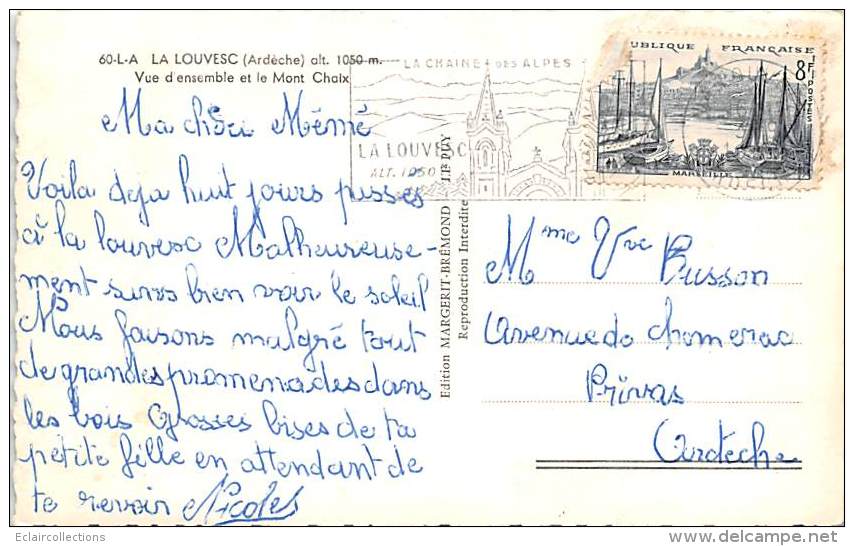 60-L-A LA LOUVESC (Ardèche) alt. 1050 m.
Vue d'ensemble et le Mont Chaix
LA CHAINE DES ALPES
LA LOUVESC
ALT. 1050
RÉPUBLIQUE FRANÇAISE
8F
POSTES
MARSEILLE
Ma chère Mémé
Voila deja huit jours passés
à la louvesc Malheureuse-
ment sans bien voir le soleil
Nous faisons malgré tout
de grandes promenades dans
les bois Grosses bises de ta
petite fille en attendant de
te revoir Nicole
Edition MARGERIT-BRÉMOND LE PUY
Reproduction Interdite
Mme Vve Busson
Avenue do Chomerac
Privas
Ardèche
Eclaircollections
www.delcampe.net